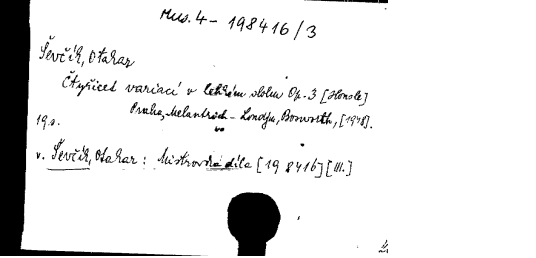 Mus. 4 - 198416/3
Ševčík, Otakar
Čtyřicet variací v lehkém slohu Op. 3 [Housle]
Praha, Melantrich - Londýn, Bosworth, [1948].
19 s.
v. Ševčík, Otakar: Mistrovská díla [198416] [III.]